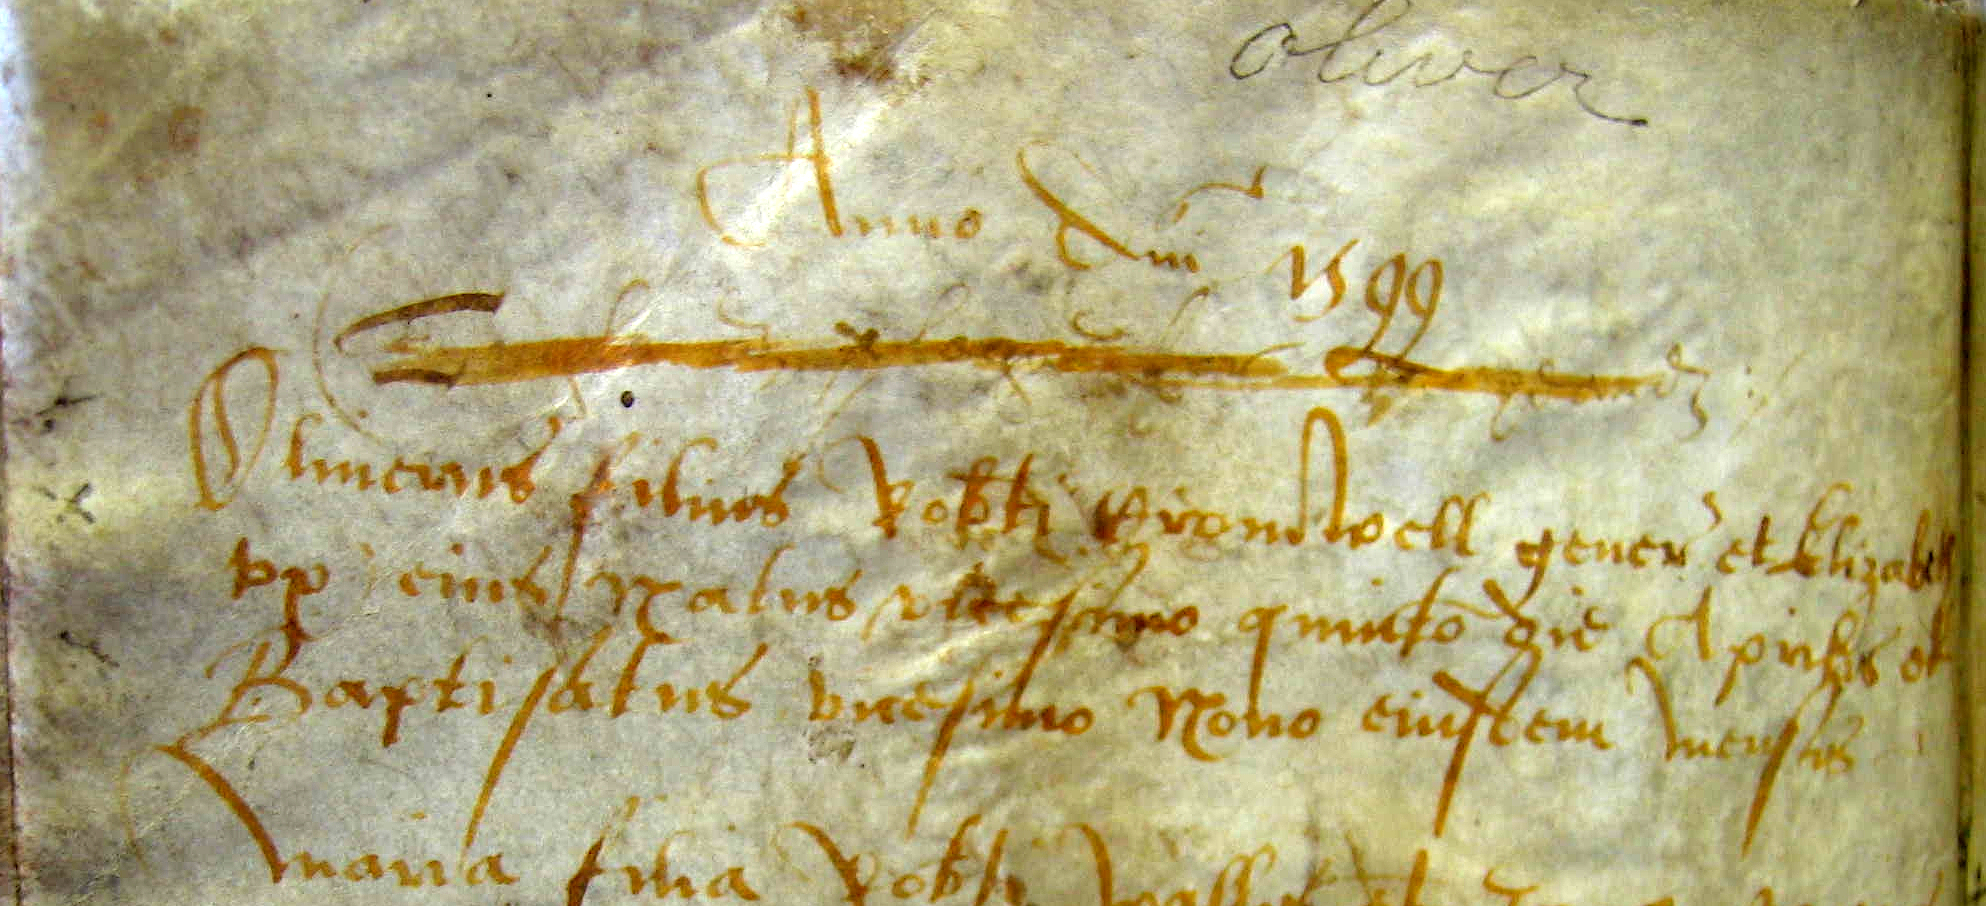 oliver
Anno Dni 1599
Oliuerus filius Robti Cromwell gener et Elizabeth
vx eius Natus vicesimo quinto die Aprilis et
Baptisatus vicesimo Nono eiusdem mensis
Maria filia Robti